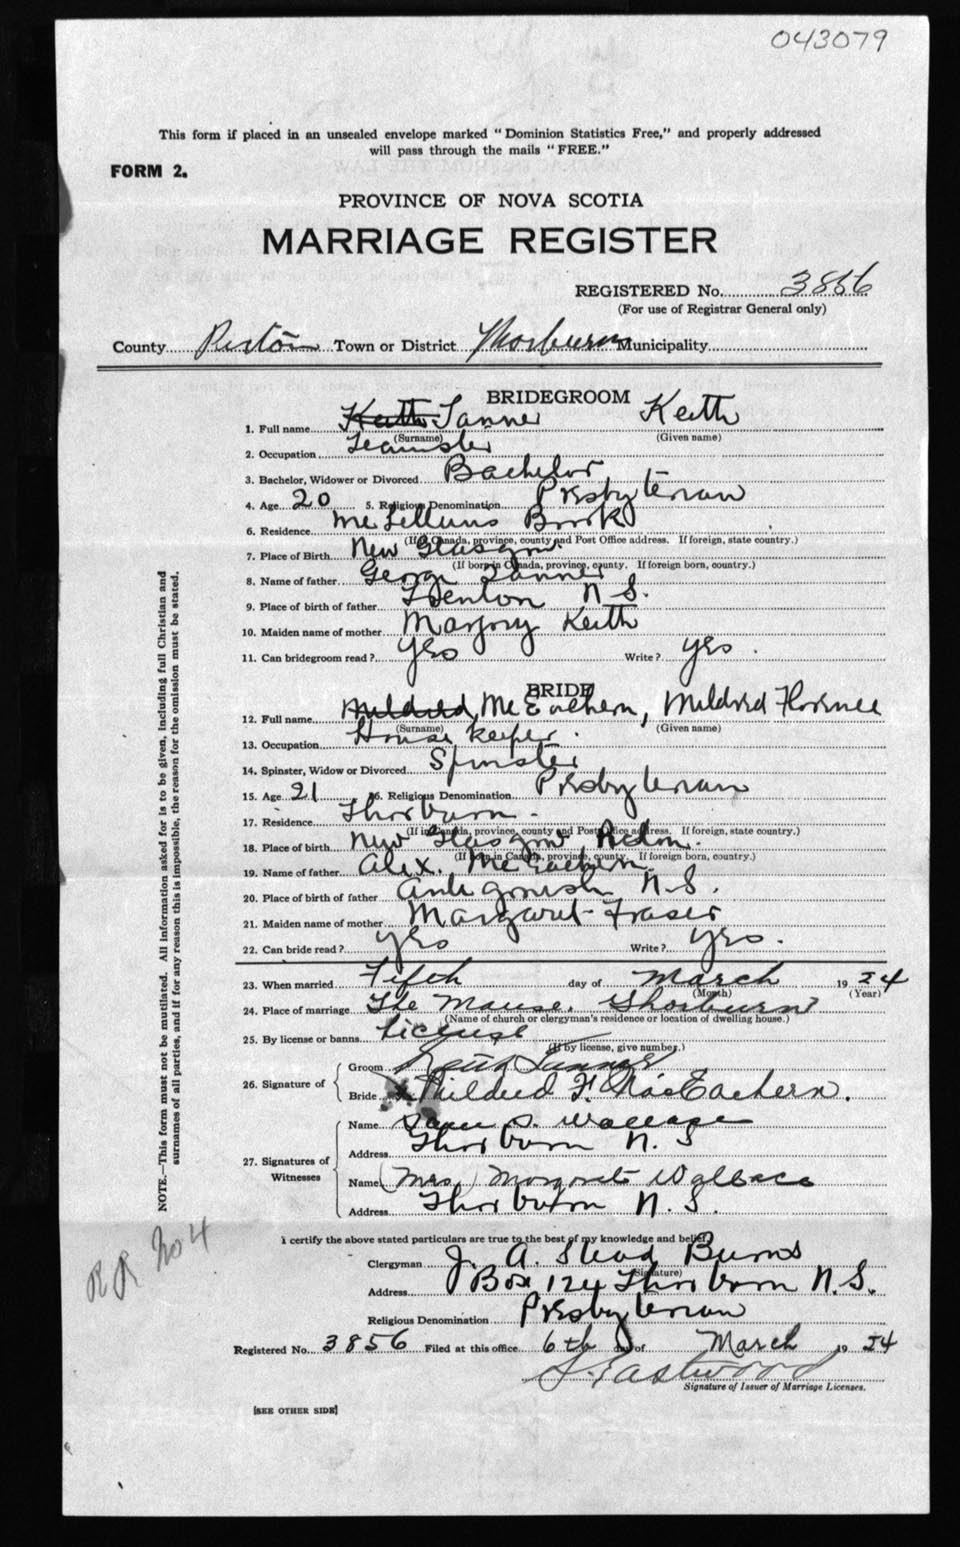 043079
This form if placed in an unsealed envelope marked "Dominion Statistics Free," and properly addressed
will pass through the mails "FREE."
FORM 2.
PROVINCE OF NOVA SCOTIA
MARRIAGE REGISTER
REGISTERED No. 3856
(For use of Registrar General only)
County Pictou Town or District Thorburn Municipality
BRIDEGROOM
1. Full name Keith Tanner Keith
(Surname) (Given name)
2. Occupation Teamster
3. Bachelor, Widower or Divorced Bachelor
4. Age 20 5. Religious Denomination Presbyterian
6. Residence McLellans Brook
(If in Canada, province, county and Post Office address. If foreign, state country.)
7. Place of Birth New Glasgow
(If born in Canada, province, county. If foreign born, country.)
8. Name of father George Tanner
9. Place of birth of father N S.
10. Maiden name of mother Marjory Keith
11. Can bridegroom read? yes Write? yes.
BRIDE
12. Full name Mildred McEachern, Mildred Florence
(Surname) (Given name)
13. Occupation House keeper.
14. Spinster, Widow or Divorced Spinster
15. Age 21 16. Religious Denomination Presbyterian
17. Residence Thorburn.
(If in Canada, province, county and Post Office address. If foreign, state country.)
18. Place of birth New Glasgow
(If born in Canada, province, county. If foreign born, country.)
19. Name of father Alex. McEachern.
20. Place of birth of father Antigonish N.S.
21. Maiden name of mother Margaret Fraser
22. Can bride read? yes Write? yes.
23. When married Fifth day of March 1924
(Month) (Year)
24. Place of marriage The Manse, Thorburn
(Name of church or clergyman's residence or location of dwelling house.)
25. By license or banns License
(If by license, give number.)
26. Signature of
Groom Keith Tanner
Bride Mildred F. MacEachern.
27. Signatures of Witnesses
Name S. Wallace
Address Thorburn N. S
Name (Mrs.) Margaret Wallace
Address Thorburn N. S.
I certify the above stated particulars are true to the best of my knowledge and belief,
Clergyman J. A. Stead Burns
(Signature)
Address Box 124 Thorburn N. S.
Religious Denomination Presbyterian
Registered No. 3856 Filed at this office 6th day of March 1924
Eastwood
Signature of Issuer of Marriage Licenses.
[SEE OTHER SIDE]
NOTE.—This form must not be mutilated. All information asked for is to be given, including full Christian and
surnames of all parties, and if for any reason this is impossible, the reason for the omission must be stated.
RR No 4